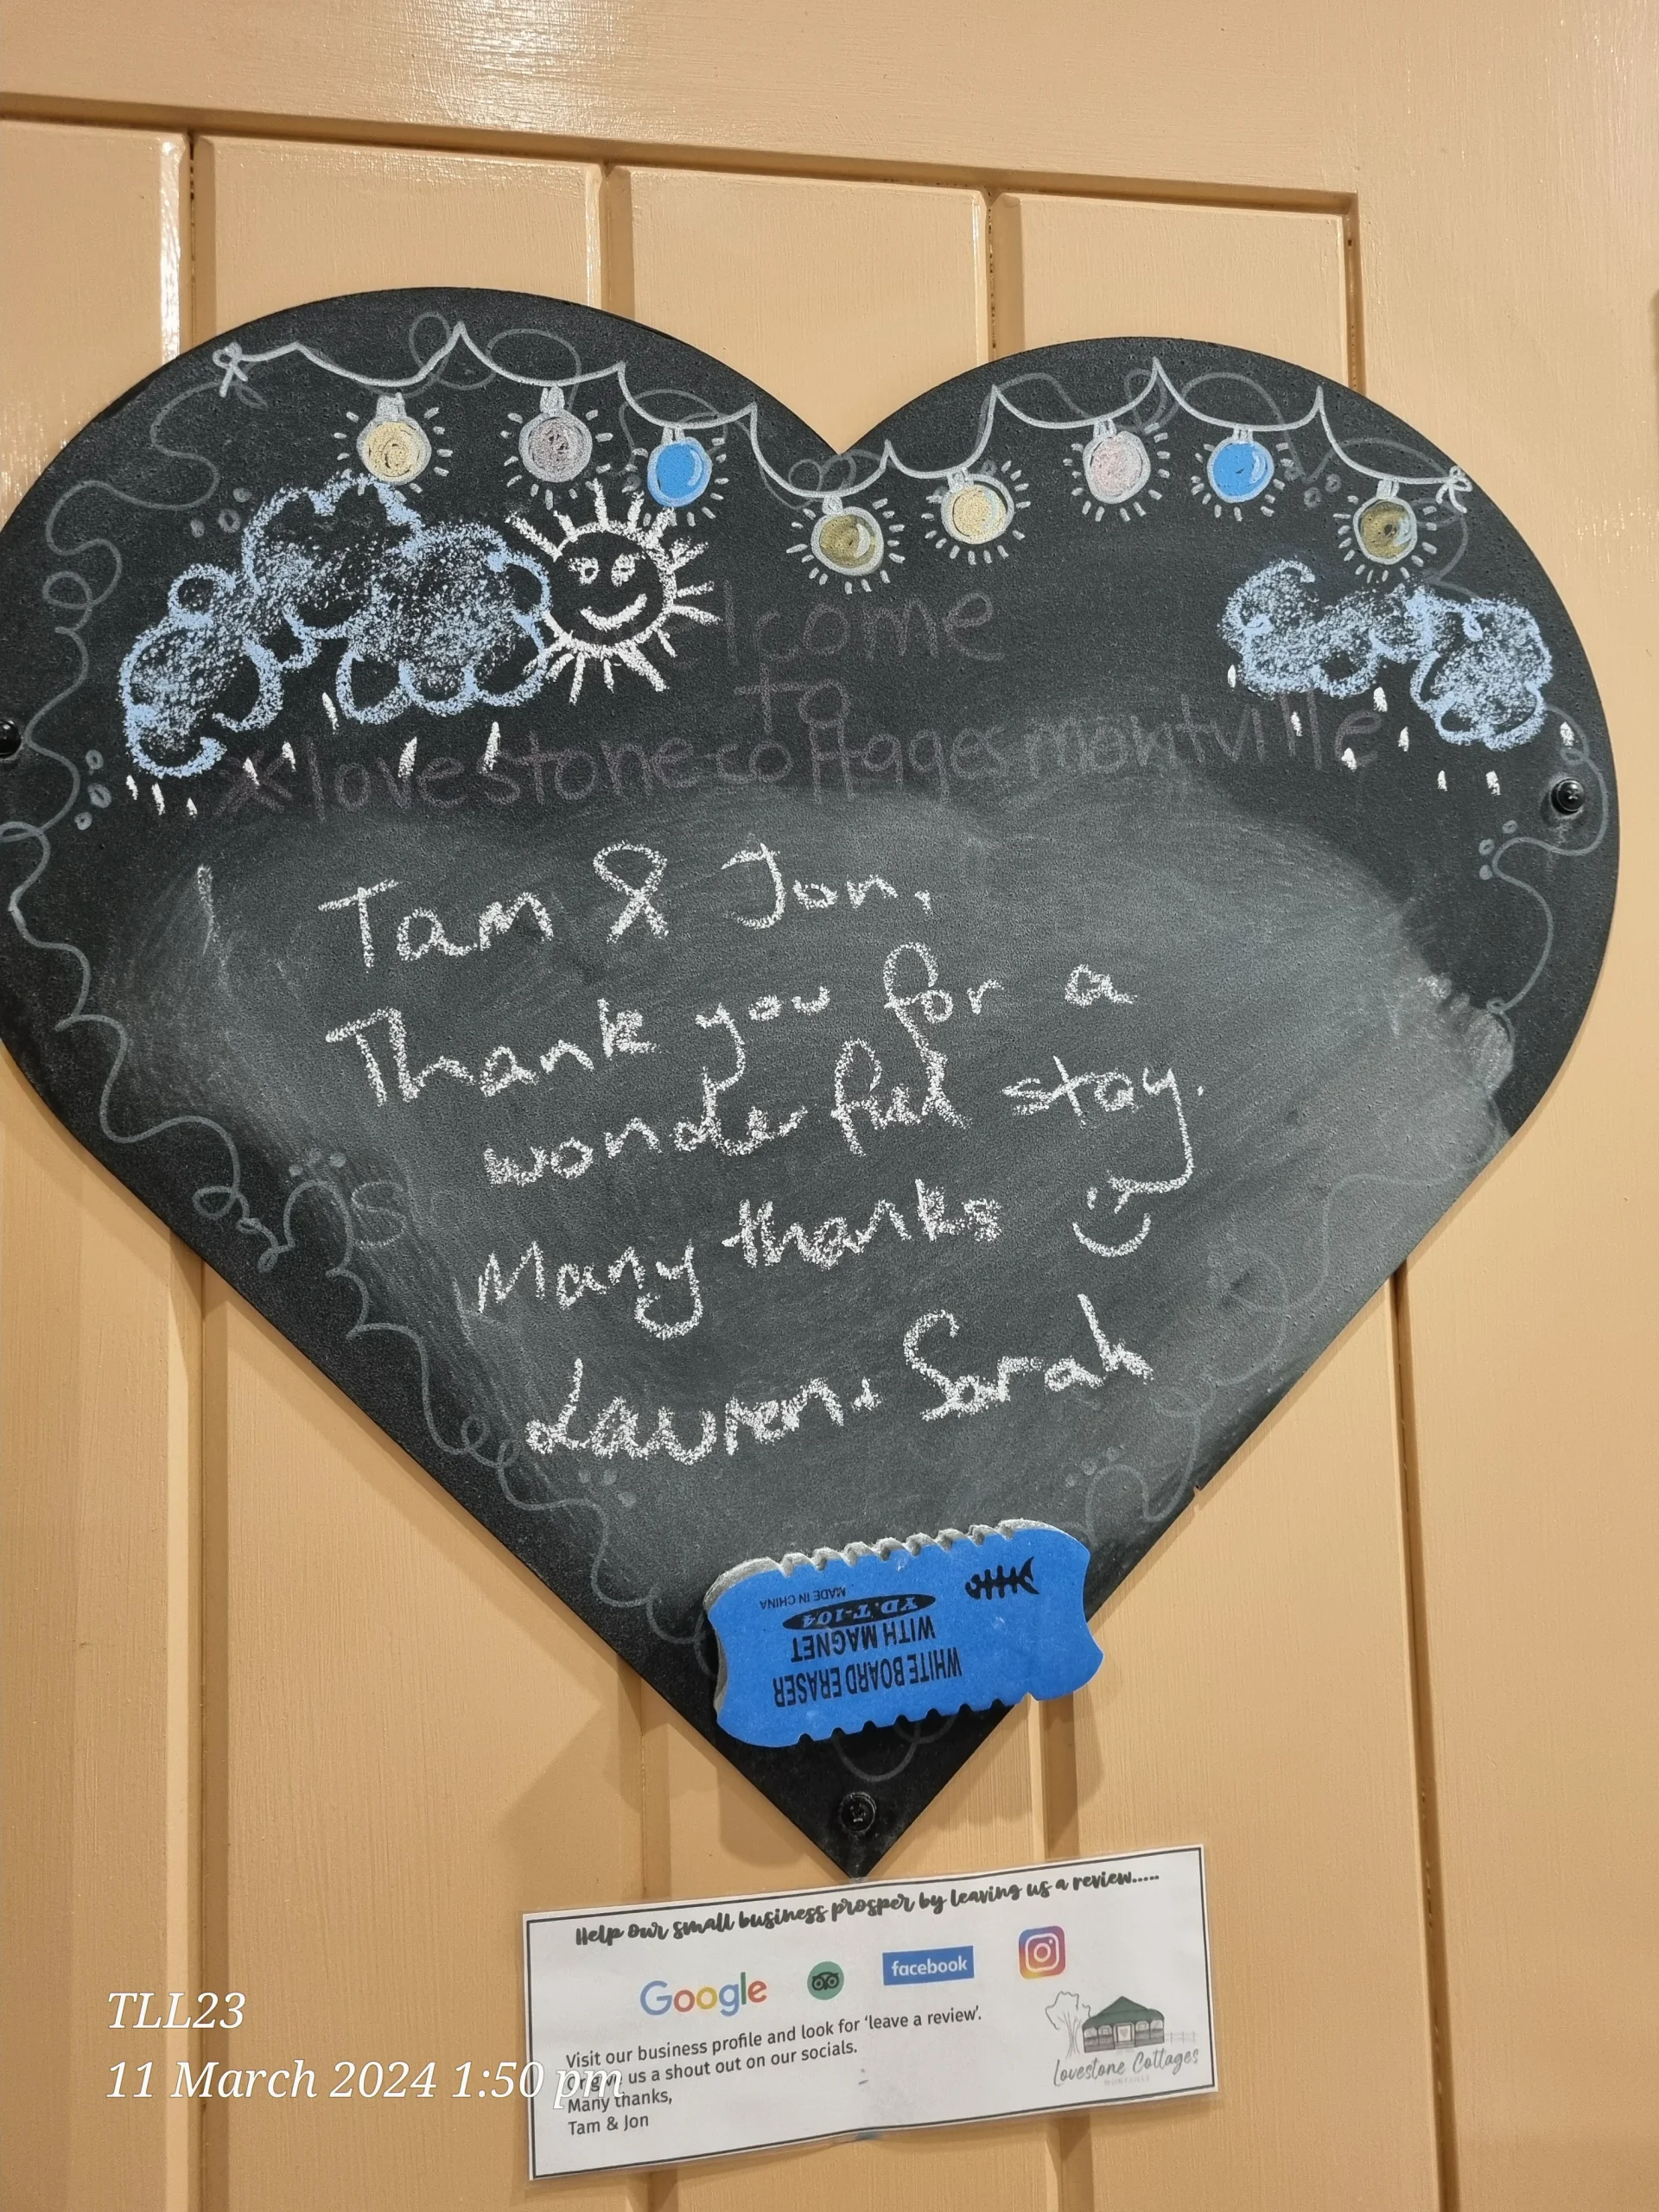 elcome
to
lovestonecottagesmontville
Tam & Jon,
Thank you for a
wonderful stay.
Many thanks
Lauren + Sarah
MADE IN CHINA
YD.T-104
WITH MAGNET
WHITE BOARD ERASER
Help our small business prosper by leaving us a review.....
Google
facebook
Visit our business profile and look for 'leave a review'.
Or give us a shout out on our socials.
Many thanks,
Tam & Jon
Lovestone Cottages
MONTVILLE
TLL23
11 March 2024 1:50 pm